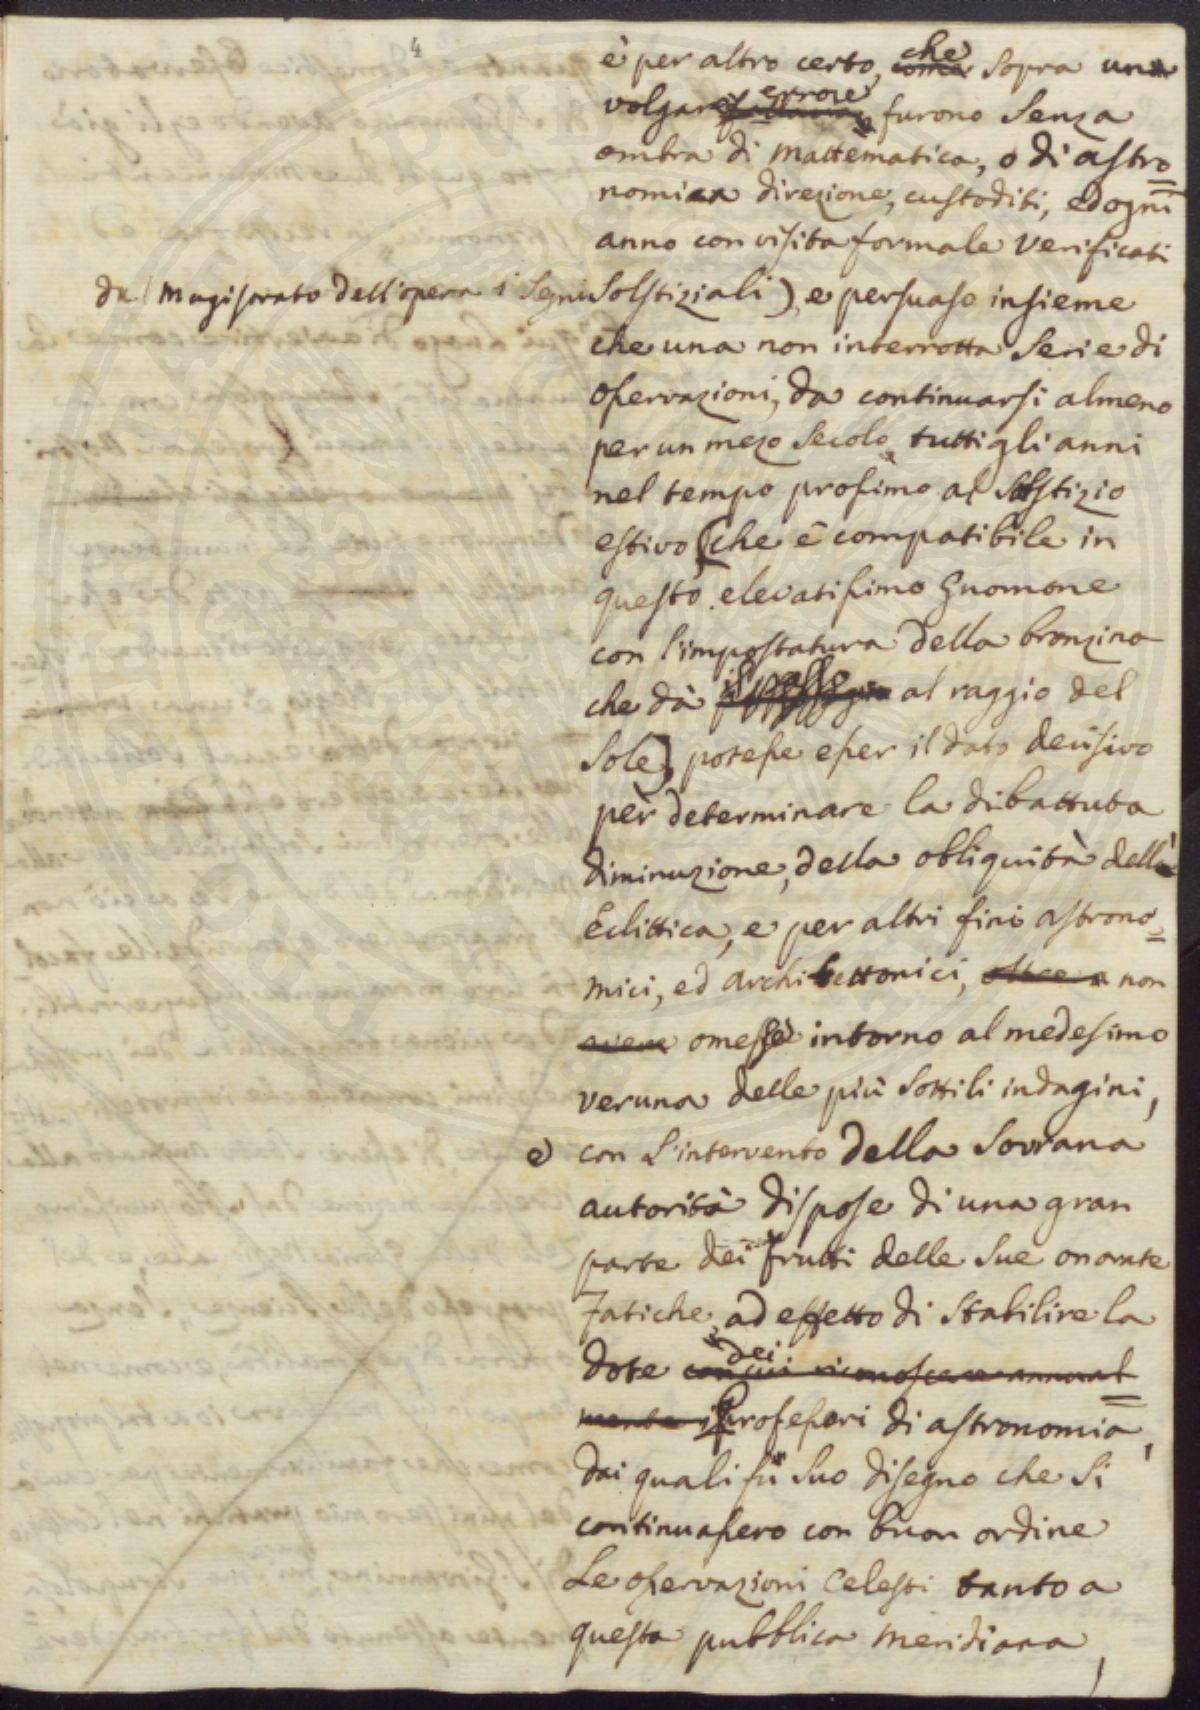 4
è per altro certo, che sopra un
volgare errore furono senza
ombra di mattematica, o di astro=
nomica direzione, custoditi, ed ogni
anno con visita formale verificati
da (Magistrato dell'opera i segni solstiziali), e persuaso insieme
che una non interrotta serie di
osservazioni, da continuarsi almeno
per un mezo secolo, tutti gli anni
nel tempo prossimo al solstizio
estivo (che è compatibile in
questo elevatissimo Gnomone
con l'impostatura della bronzina
che dà il passo al raggio del
Sole) potesse esser il dato decisivo
per determinare la dibattuta
diminuzione, della obliquità dell'
Eclittica, e per altri fini astrono=
mici, ed architettonici, oltre a non
avere omessa intorno al medesimo
veruna delle più sottili indagini,
e con l'intervento della Sovrana
autorità dispose di una gran
parte dei frutti delle sue onorate
fatiche, ad effetto di stabilire la
dote dei con cui riconoscere annual=
mente i Professori di astronomia,
dai quali fù suo disegno che si
continuassero con buon ordine
Le osservazioni Celesti tanto a
questa pubblica Meridiana,